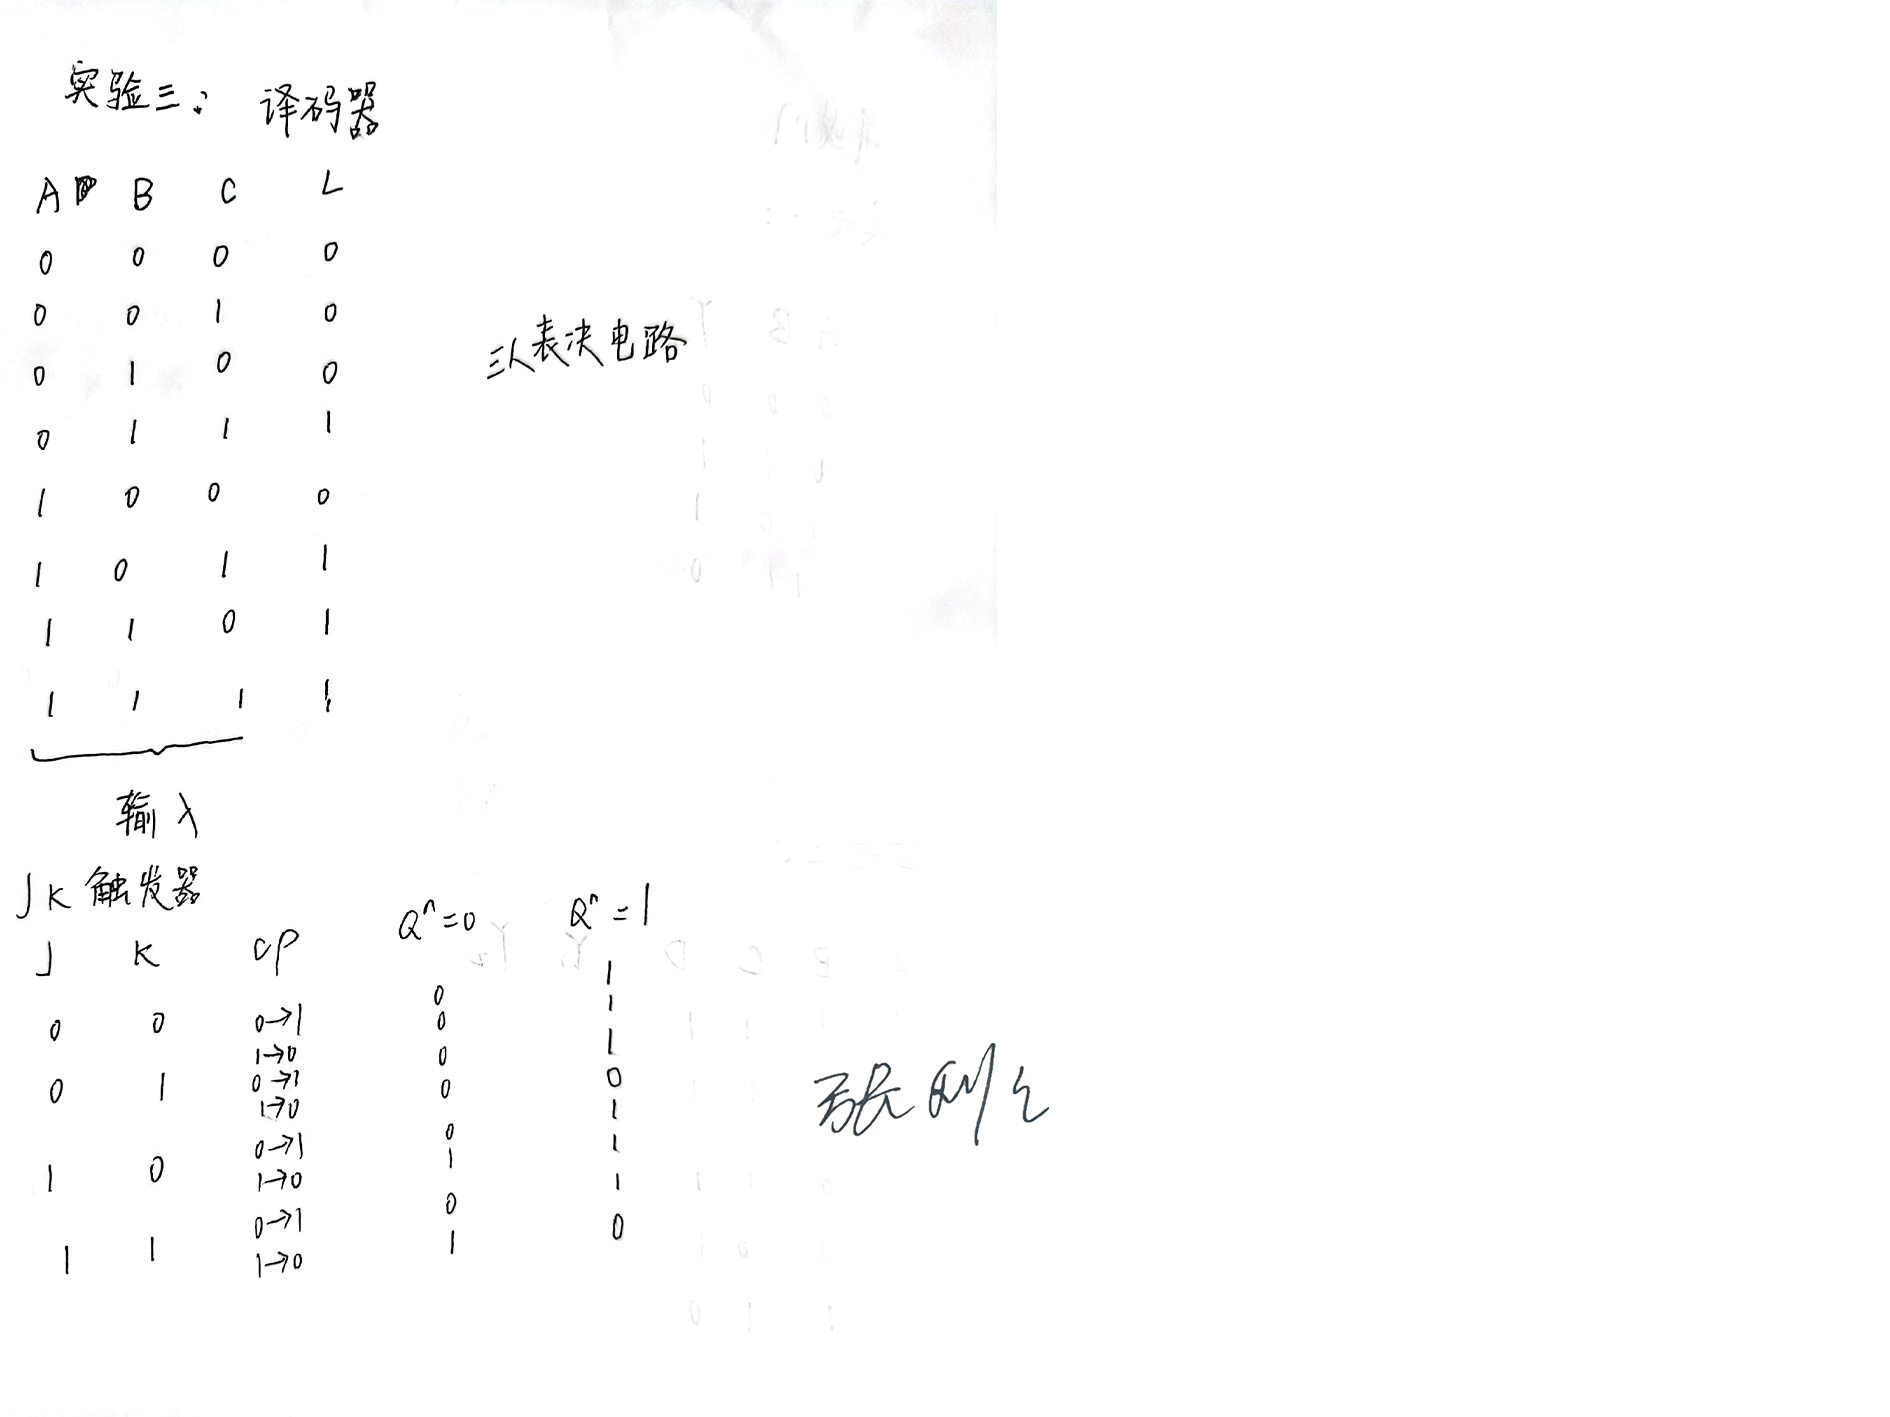 实验三： 译码器
A B C L
0 0 0 0
0 0 1 0
0 1 0 0
0 1 1 1
1 0 0 0
1 0 1 1
1 1 0 1
1 1 1 1
三人表决电路
输入
JK 触发器
J K CP Qⁿ=0 Qⁿ=1
0 0 0→1 0 1
1→0 0 1
0 1 0→1 0 1
1→0 0 0
1 0 0→1 0 1
1→0 1 1
1 1 0→1 0 1
1→0 1 0
张